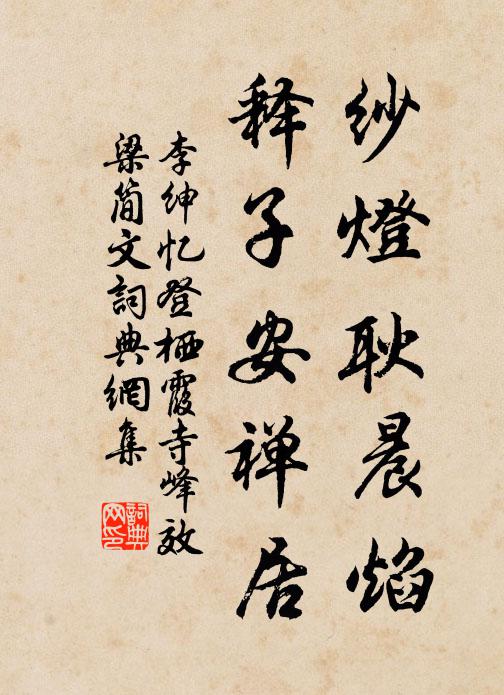 纱燈耿晨焰
释子安禅居
李绅忆登栖霞寺峰效
梁简文詞典網集
詞典网印